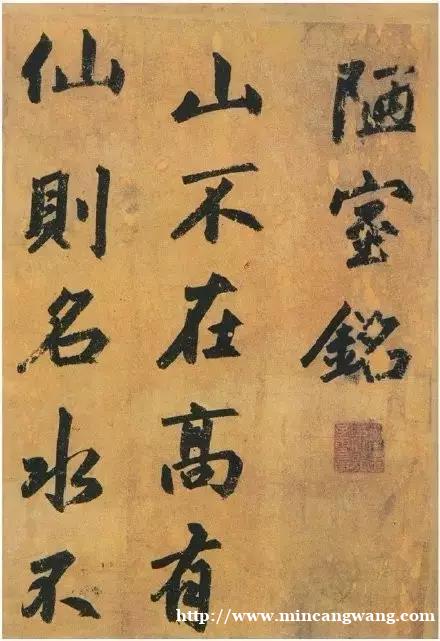 陋室銘
山不在高有
仙則名水不
http://www.mincangwang.com